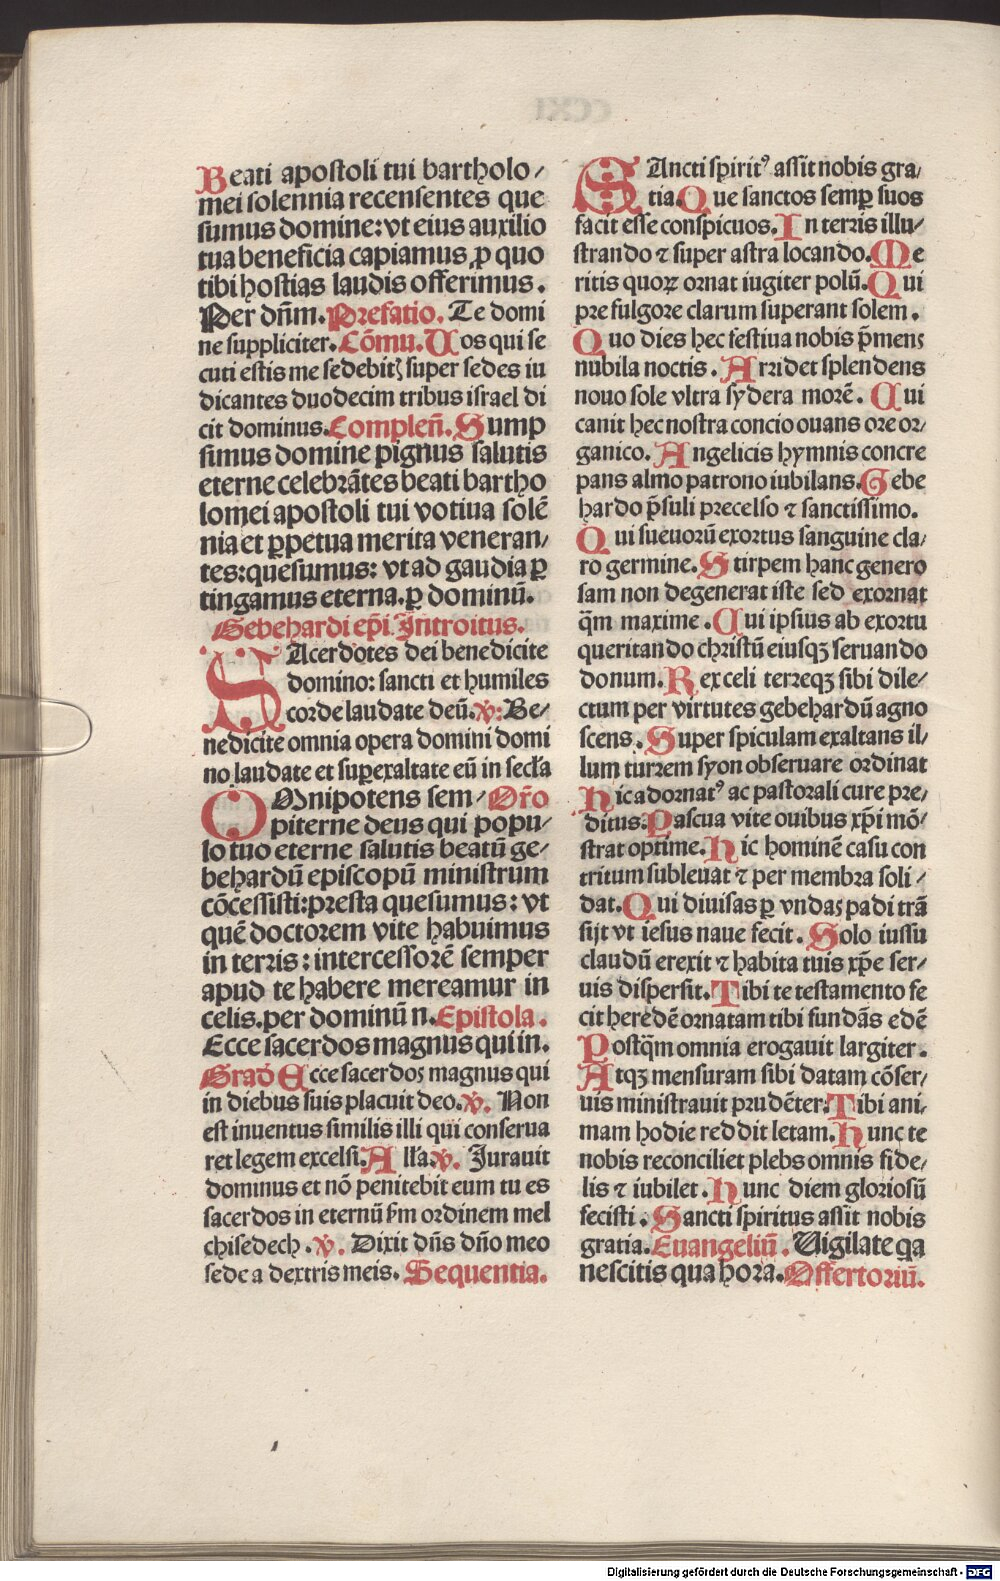 Beati apostoli tui bartholo/
mei solennia recensentes que
sumus domine: vt eius auxilio
tua beneficia capiamus ꝓ quo
tibi hostias laudis offerimus.
Per dn̄m. Prefatio. Te domi
ne suppliciter. Cōmu. Uos qui se
cuti estis me sedebitꝭ super sedes iu
dicantes duodecim tribus israel di
cit dominus. Complen̄. Sump
simus domine pignus salutis
eterne celebrātes beati bartho
lomei apostoli tui votiua solē
nia et ꝑpetua merita veneran/
tes: quesumus: vt ad gaudia ꝑ
tingamus eterna. ꝑ dominū.
Gebehardi ep̄i. Introitus.
SAcerdotes dei benedicite
domino: sancti et humiles
corde laudate deū. v̄: Be/
nedicite omnia opera domini domi
no laudate et superexaltate eū in secl̄a
OMnipotens sem/ Or̄o
piterne deus qui popu/
lo tuo eterne salutis beatū ge/
behardū episcopū ministrum
cōcessisti: presta quesumus: vt
quē doctorem vite habuimus
in terris: intercessorē semper
apud te habere mereamur in
celis. per dominū n. Epistola.
Ecce sacerdos magnus qui in.
Grad̄ Ecce sacerdos magnus qui
in diebus suis placuit deo. v̄. Non
est inuentus similis illi qui conserua
ret legem excelsi. All̄a. v̄. Jurauit
dominus et nō penitebit eum tu es
sacerdos in eternū ẜm ordinem mel
chisedech. v̄. Dixit dn̄s dn̄o meo
sede a dextris meis. Sequentia.
SAncti spiritꝰ assit nobis gra/
tia. Que sanctos semꝑ suos
facit esse conspicuos. In terris illu/
strando ⁊ super astra locando. Me
ritis quoꝝ ornat iugiter polū. Qui
pre fulgore clarum superant solem.
Quo dies hec festiua nobis p̄mens
nubila noctis. Arridet splendens
nouo sole vltra sydera morē. Cui
canit hec nostra concio ouans ore or/
ganico. Angelicis hymnis concre
pans almo patrono iubilans. Gebe
hardo p̄suli precelso ⁊ sanctissimo.
Qui sueuorū exortus sanguine cla/
ro germine. Stirpem hanc genero
sam non degenerat iste sed exornat
qm̄ maxime. Cui ipsius ab exortu
queritando christū eiusqꝫ seruando
donum. Rex celi terreqꝫ sibi dile/
ctum per virtutes gebehardū agno
scens. Super spiculam exaltans il/
lum turrem syon obseruare ordinat
Hic adornatꝰ ac pastorali cure pre/
ditus. Pascua vite ouibus xp̄i mō/
strat optime. Hic hominē casu con
tritum subleuat ⁊ per membra soli/
dat. Qui diuisas ꝑ vndas padi trā
sijt vt iesus naue fecit. Solo iussu
claudū erexit ⁊ habita tuis xp̄e ser/
uis dispersit. Tibi te testamento fe
cit heredē ornatam tibi fundās edē
Postqm̄ omnia erogauit largiter.
Atqꝫ mensuram sibi datam cōser/
uis ministrauit prudēter. Tibi ani/
mam hodie reddit letam. Hunc te
nobis reconciliet plebs omnis fide/
lis ⁊ iubilet. Hunc diem gloriosū
fecisti. Sancti spiritus assit nobis
gratia. Euangeliū. Uigilate qꝛa
nescitis qua hora. Offertoriū.
Digitalisierung gefördert durch die Deutsche Forschungsgemeinschaft - DFG